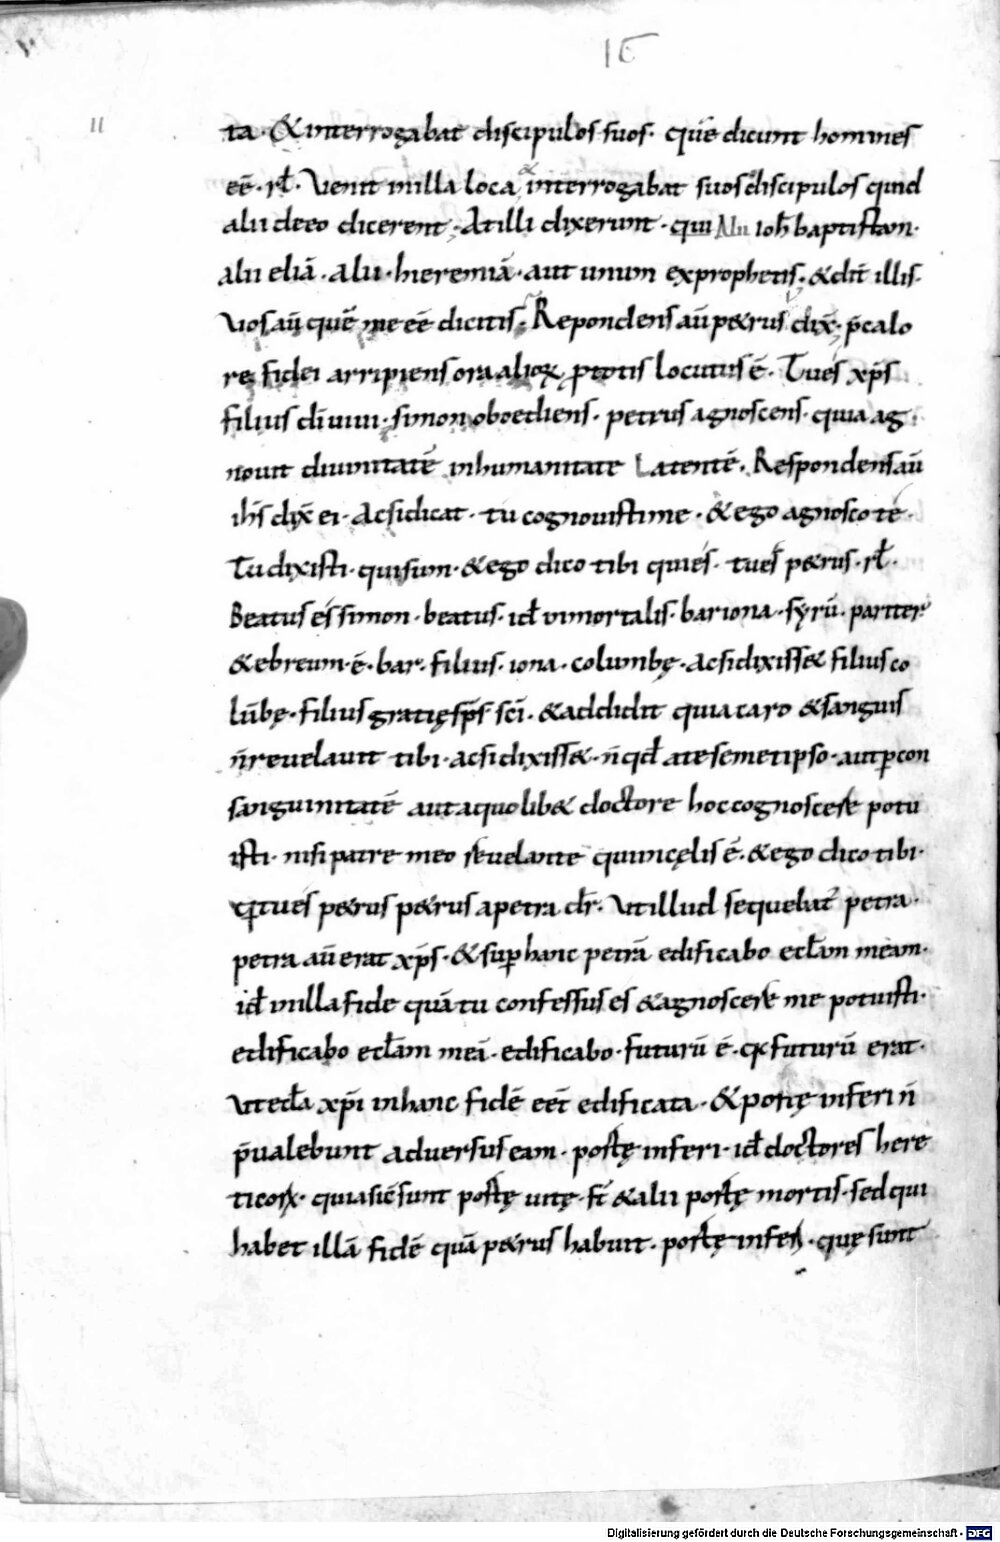 16
II
ta · & interrogabat discipulos suos · quē dicunt homines
eē · rł · Venit in illa loca & interrogabat suos discipulos quid
alii de eo dicerent · At illi dixerunt · qui Alii ioħ baptistam ·
alii eliā · alii · hieremiā · aut unum ex prophetis · & dīt illis ·
Vos aū quē me eē dicitis · Repondens aū p&rus dix̄ · p̄ calo
re fidei arripiens ora alioꝝ p totis locutus ē · Tu es xp̄s
filius di uiui · simon oboediens · petrus agnoscens · quia ag
nouit diuinitatē in humanitate Latentē · Respondens aū
ih̄s dix̄ ei · Ac si dicat · tu cognouisti me · & ego agnosco te ·
Tu dixisti · qui sum · & ego dico tibi qui es · tu es p&rus · rł ·
Beatus es simon · beatus · id̄ inmortalis · bar iona · syrū · pariter
& ebreum · ē · bar · filius · iona · columbę · Ac si dixiss& filius co
lūbę · filius gratię sp̄s sc̄i · & addidit quia caro & sanguis
n̄ reuelauit tibi · ac si dixiss& · n̄ qd̄ a te semetipso · aut ꝑ con
sanguinitatē aut a quolib& doctore hoc cognoscere potu
isti · nisi patre meo reuelante qui in cęlis ē · & ego dico tibi ·
qꝛ tu es p&rus p&rus a petra dr̄ · Vt illud sequebat̄ petra ·
petra aū erat xp̄s · & suꝑ hanc petrā edificabo eccłam meam ·
id̄ in illa fide quā tu confessus es & agnoscere me potuisti ·
edificabo eccłam meā · edificabo · futurū ē · qꝛ futurū erat ·
Vt eccła xp̄i in hanc fidē eēt edificata · & portę inferi n̄
p̄ualebunt aduersus eam · portę inferi · id̄ doctores here
ticoꝝ · quia sic̄ sunt portę uitę · sic̄ & alii portę mortis · sed qui
habet illā fidē quā p&rus habuit · portę inferi · quę sunt
Digitalisierung gefördert durch die Deutsche Forschungsgemeinschaft · DFG